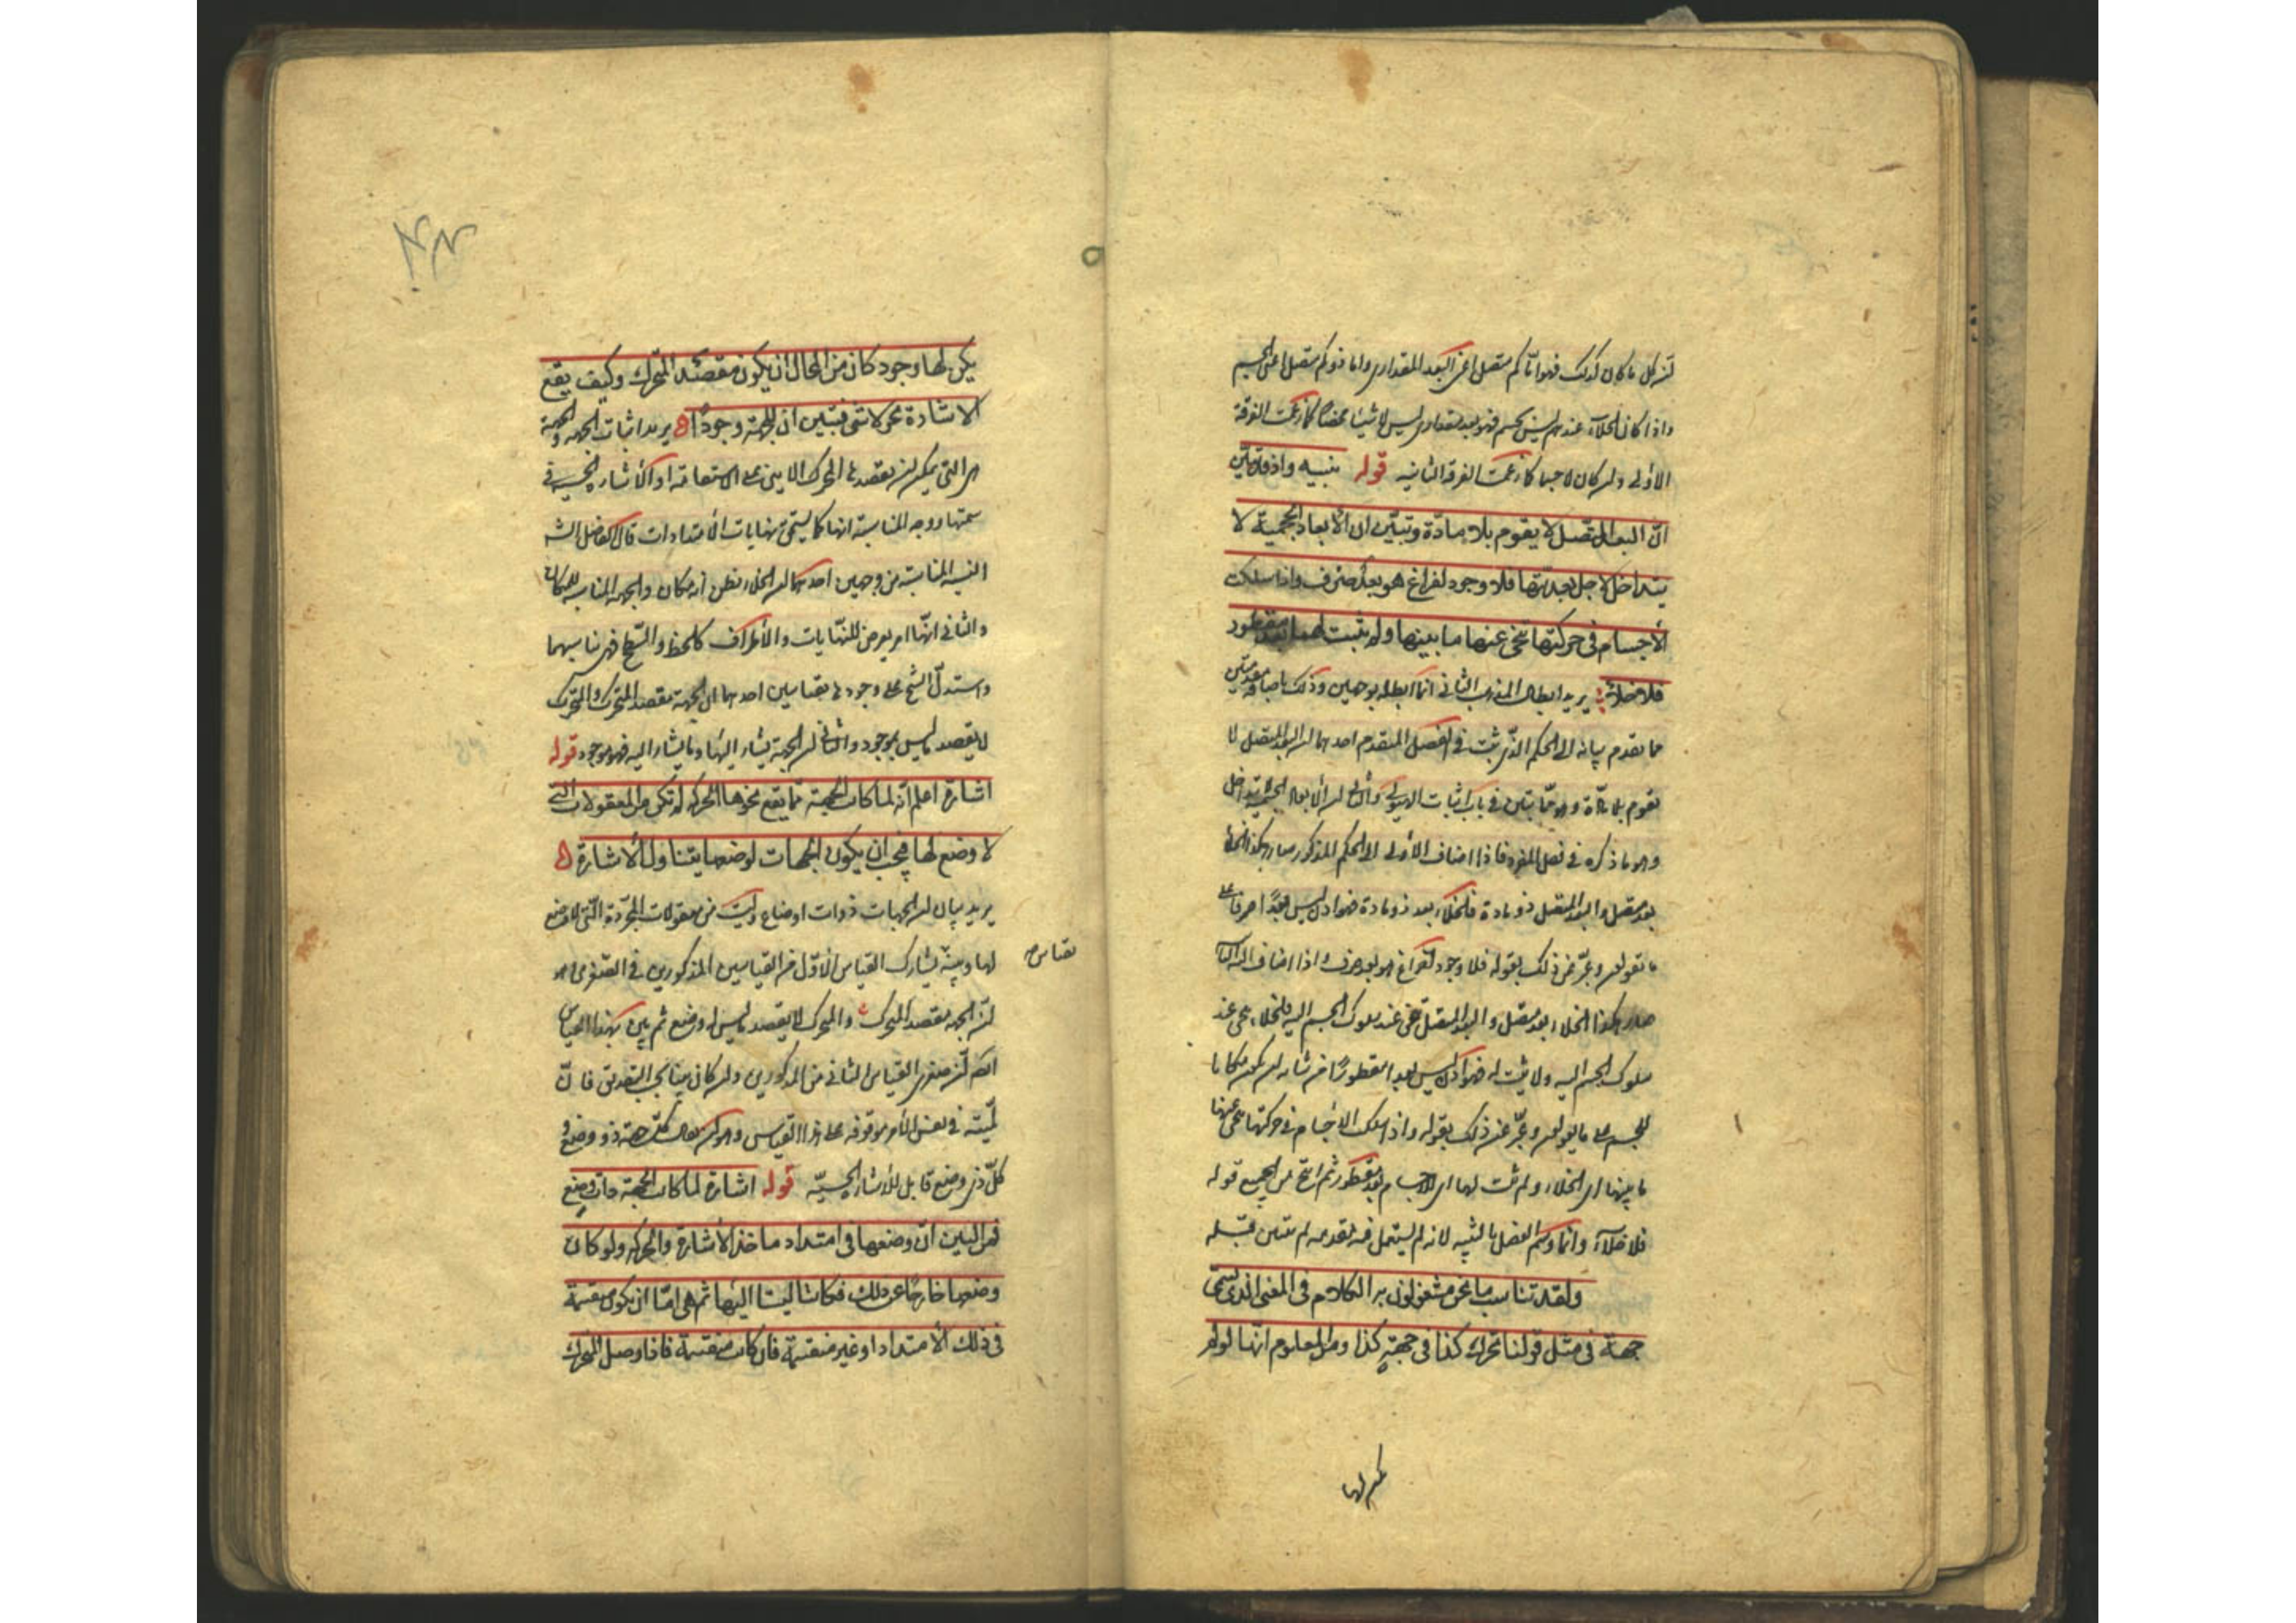 لان كل ما كان كذلك فهو اما كم متصل اعنى البعد المقدارى واما ذو كم متصل اعنى الجسم
واذا كان الخلاء عندهم ليس بجسم فهو بعد مقدارى ليس لا شيئا محضا كما زعمت الفرقة
الأولى ولن كان لا جسما كما زعمت الفرقة الثانيه قوله تنبيه واذ قد تبيّن
انّ البعد المتّصل لا يقوم بلا مادّة وتبيّن ان الابعاد الحجميّة لا
يتداخل لاجل بعديّتها فلا وجود لفراغ هو بعد صرف واذا سلكت
الأجسام فى حركتها تنحى عنها ما بينها ولم يثبت لها بعد مفطور
فلا خلاء يريد ابطال المذهب الثانى انما ابطله بوجهين وذلك باضافة مقدمتين
مما تقدم بيانه الى الحكم الذى ثبت فى الفصل المتقدم احدهما لن البعد المتصل لا
يقوم بلا مادّة وهو مما تبيّن فى باب اثبات الهيولى والثانى لن الأبعاد الجسمية لا تتداخل
وهو ما ذكره فى فصل المفرد فاذا اضاف الأولى الى الحكم المذكور صار هكذا الخلاء
بعد متصل والبعد المتصل ذو مادة فالخلاء بعد ذو مادة فهو اذن ليس بعدًا صرفا على
ما تقولون وعبّر عن ذلك بقوله فلا وجود لفراغ هو بعد صرف واذا اضاف اليه الثانية
صار هكذا الخلاء بعد متصل والبعد المتصل يتنحى عند سلوك الجسم اليه فالخلاء يتنحى عند
سلوك الجسم اليه ولا يثبت له فهو اذن ليس بعدا مفطورًا من شانه لن يكون مكانا
للجسم على ما يقولون وعبّر عن ذلك بقوله واذا سلك الأجسام فى حركتها تنحى عنها
ما بينها اى الخلاء ولم يثبت لها اى للاجسام بعد مفطور ثم انتج من الجميع قوله
فلا خلاء وانما وسم الفصل بالتنبيه لانه لم يستعمل فيه مقدمه لم تتبين قبله
ولقد تناسب ما نحن مشغولون به الكلام فى المعنى الذى يسمّى
جهة فى مثل قولنا تحرك كذا فى جهة كذا ومن المعلوم انّها لو لم
يكن لها
يكن لها وجود كان من المحال ان يكون مقصدا للمتحرك وكيف يقع
الاشارة نحو لا شئ فتبيّن ان للجهة وجودًا يريد اثبات الجهة والجهة
هى التى يمكن لن يقصدها المتحرك الاينى على الاستقامة او الأشارة الحسية فى
سمتها ووجه المناسبة انها كما يستحق نهايات الامتدادات قال الفاضل الشارح
المناسبة من وجهين احدهما لن الخلاء يظن انه مكان والجهة المناسبة للمكان
والثانى انّها امر يعرض للنهايات والأطراف كالخط والسطح فهى تناسبهما
واستدلّ الشيخ على وجودها بقياسين احدهما ان الجهة مقصد المتحرك والمتحرك
لا يقصد ما ليس بموجود والثانى لن الجهة يشار اليها وما يشار اليه فهو موجود قوله
اشارة اعلم انّه لما كانت الجهة ممّا يقع نحوها الحركه لم تكن من المعقولات التى
لا وضع لها فيجب ان يكون الجهات لوضعها يتناولها الأشارة
يريد بيان لن الجهات ذوات اوضاع وليست من معقولات المجردة التى لا وضع
لها وبيّنه يشارك القياس الأول من القياسين المذكورين فى الصغرى هو
بقياس
لن الجهة مقصد المتحرك والمتحرك لا يقصد ما ليس له وضع ثم بيّن بهذا القياس
لن صغرى القياس الثانى من المذكورين ولن كان بيّنا بحسب التصديق فانّ
لمّيته فى نفس الأمر موقوفه على هذا القياس وهو لن يقال كلّ جهة ذو وضع و
كلّ ذى وضع قابل للأشارة الحسيّة قوله اشارة لما كانت الجهة ذات وضع
فمن البيّن انّ وضعها فى امتداد ماخذ الأشارة والحركه ولو كان
وضعها خارجًا عن ذلك فكانتا ليستا اليها ثم هى امّا ان يكون منقسمة
فى ذلك الأمتداد او غير منقسمة فان كانت منقسمة فاذا وصل المتحرك